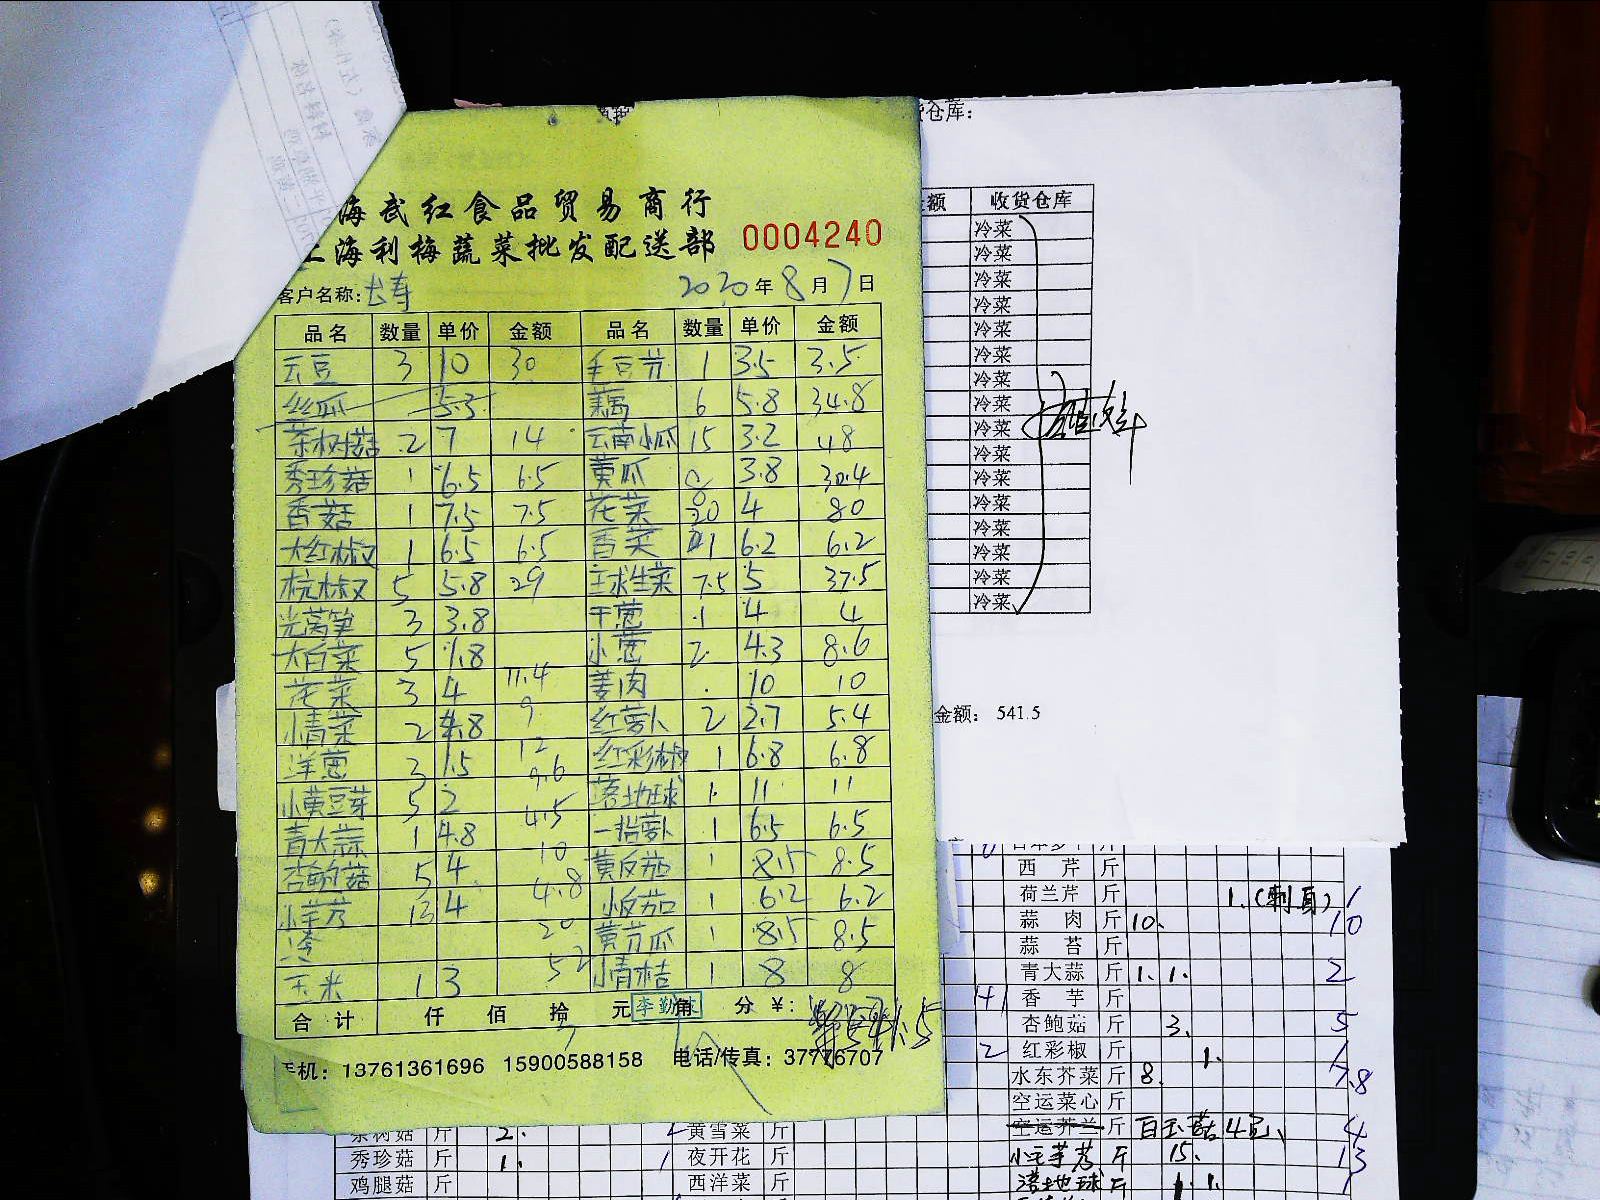 海武红食品贸易商行
上海利梅蔬菜批发配送部 0004240
客户名称: 长寿 2020年8月7日
品名 数量 单价 金额 品名 数量 单价 金额
云豆 3 10 30 毛豆节 1 3.5 3.5
丝瓜 5.3 藕 6 5.8 34.8
茶树菇 2 7 14 云南小瓜 15 3.2 48
秀珍菇 1 6.5 6.5 黄瓜 8 3.8 30.4
香菇 1 7.5 7.5 花菜 20 4 80
大红椒 1 6.5 6.5 香菜 1 6.2 6.2
杭椒 5 5.8 29 球生菜 7.5 5 37.5
光莴笋 3 3.8 干葱 1 4 4
大白菜 5 1.8 小葱 2 4.3 8.6
花菜 3 4 11.4 姜肉 10 10
小青菜 2 4.8 9 红萝卜 2 2.7 5.4
洋葱 3 1.5 12 红彩椒 1 6.8 6.8
小黄豆芽 5 2 9.6 落地球 1 11 11
青大蒜 1 4.8 4.5 一指萝卜 1 6.5 6.5
杏鲍菇 5 4 10 黄反茄 1 8.5 8.5
小芋艿 13 4 4.8 小反茄 1 6.2 6.2
20 黄节瓜 1 8.5 8.5
玉米 1 3 52 小青桔 1 8 8
合计 仟 佰 拾 元 角 分 ¥:
李勤
手机: 13761361696 15900588158 电话/传真: 37776707
货仓库:
金额 收货仓库
冷菜
冷菜
冷菜
冷菜
冷菜
冷菜
冷菜
冷菜
冷菜
冷菜
冷菜
冷菜
冷菜
冷菜
冷菜
冷菜
金额: 541.5
西芹 斤
荷兰芹 斤 1.(刺身) 1
蒜肉 斤 10. 10
蒜苔 斤
青大蒜 斤 1. 1. 2
香芋 斤
杏鲍菇 斤 3. 5
红彩椒 斤 1. 1
水东芥菜 斤 8. 7.8
空运菜心 斤
空运芥兰 斤 白玉菇4包 4
茶树菇 斤 2. 黄雪菜 斤 小毛芋艿 斤 15. 13
秀珍菇 斤 1. 夜开花 斤 落地球 斤 1. 1. 1
鸡腿菇 斤 西洋菜 斤